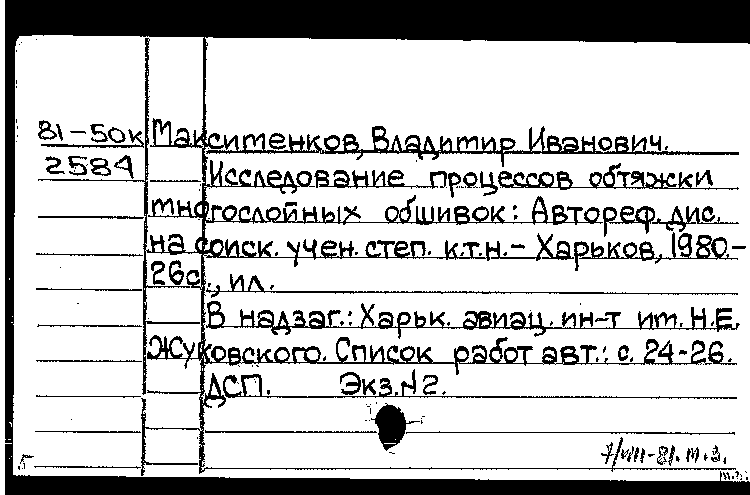 81-50к Макситенков, Владимир Иванович.
2584 Исследование процессов обтяжки
многослойных обшивок: Автореф. дис.
на соиск. учен. степ. к.т.н.- Харьков, 1980.-
26с., ил.
В надзаг.: Харьк. авиац. ин-т им. Н.Е.
Жуковского. Список работ авт.: с. 24-26.
ДСП. Экз.№2.
7/VIII-81. м.з.